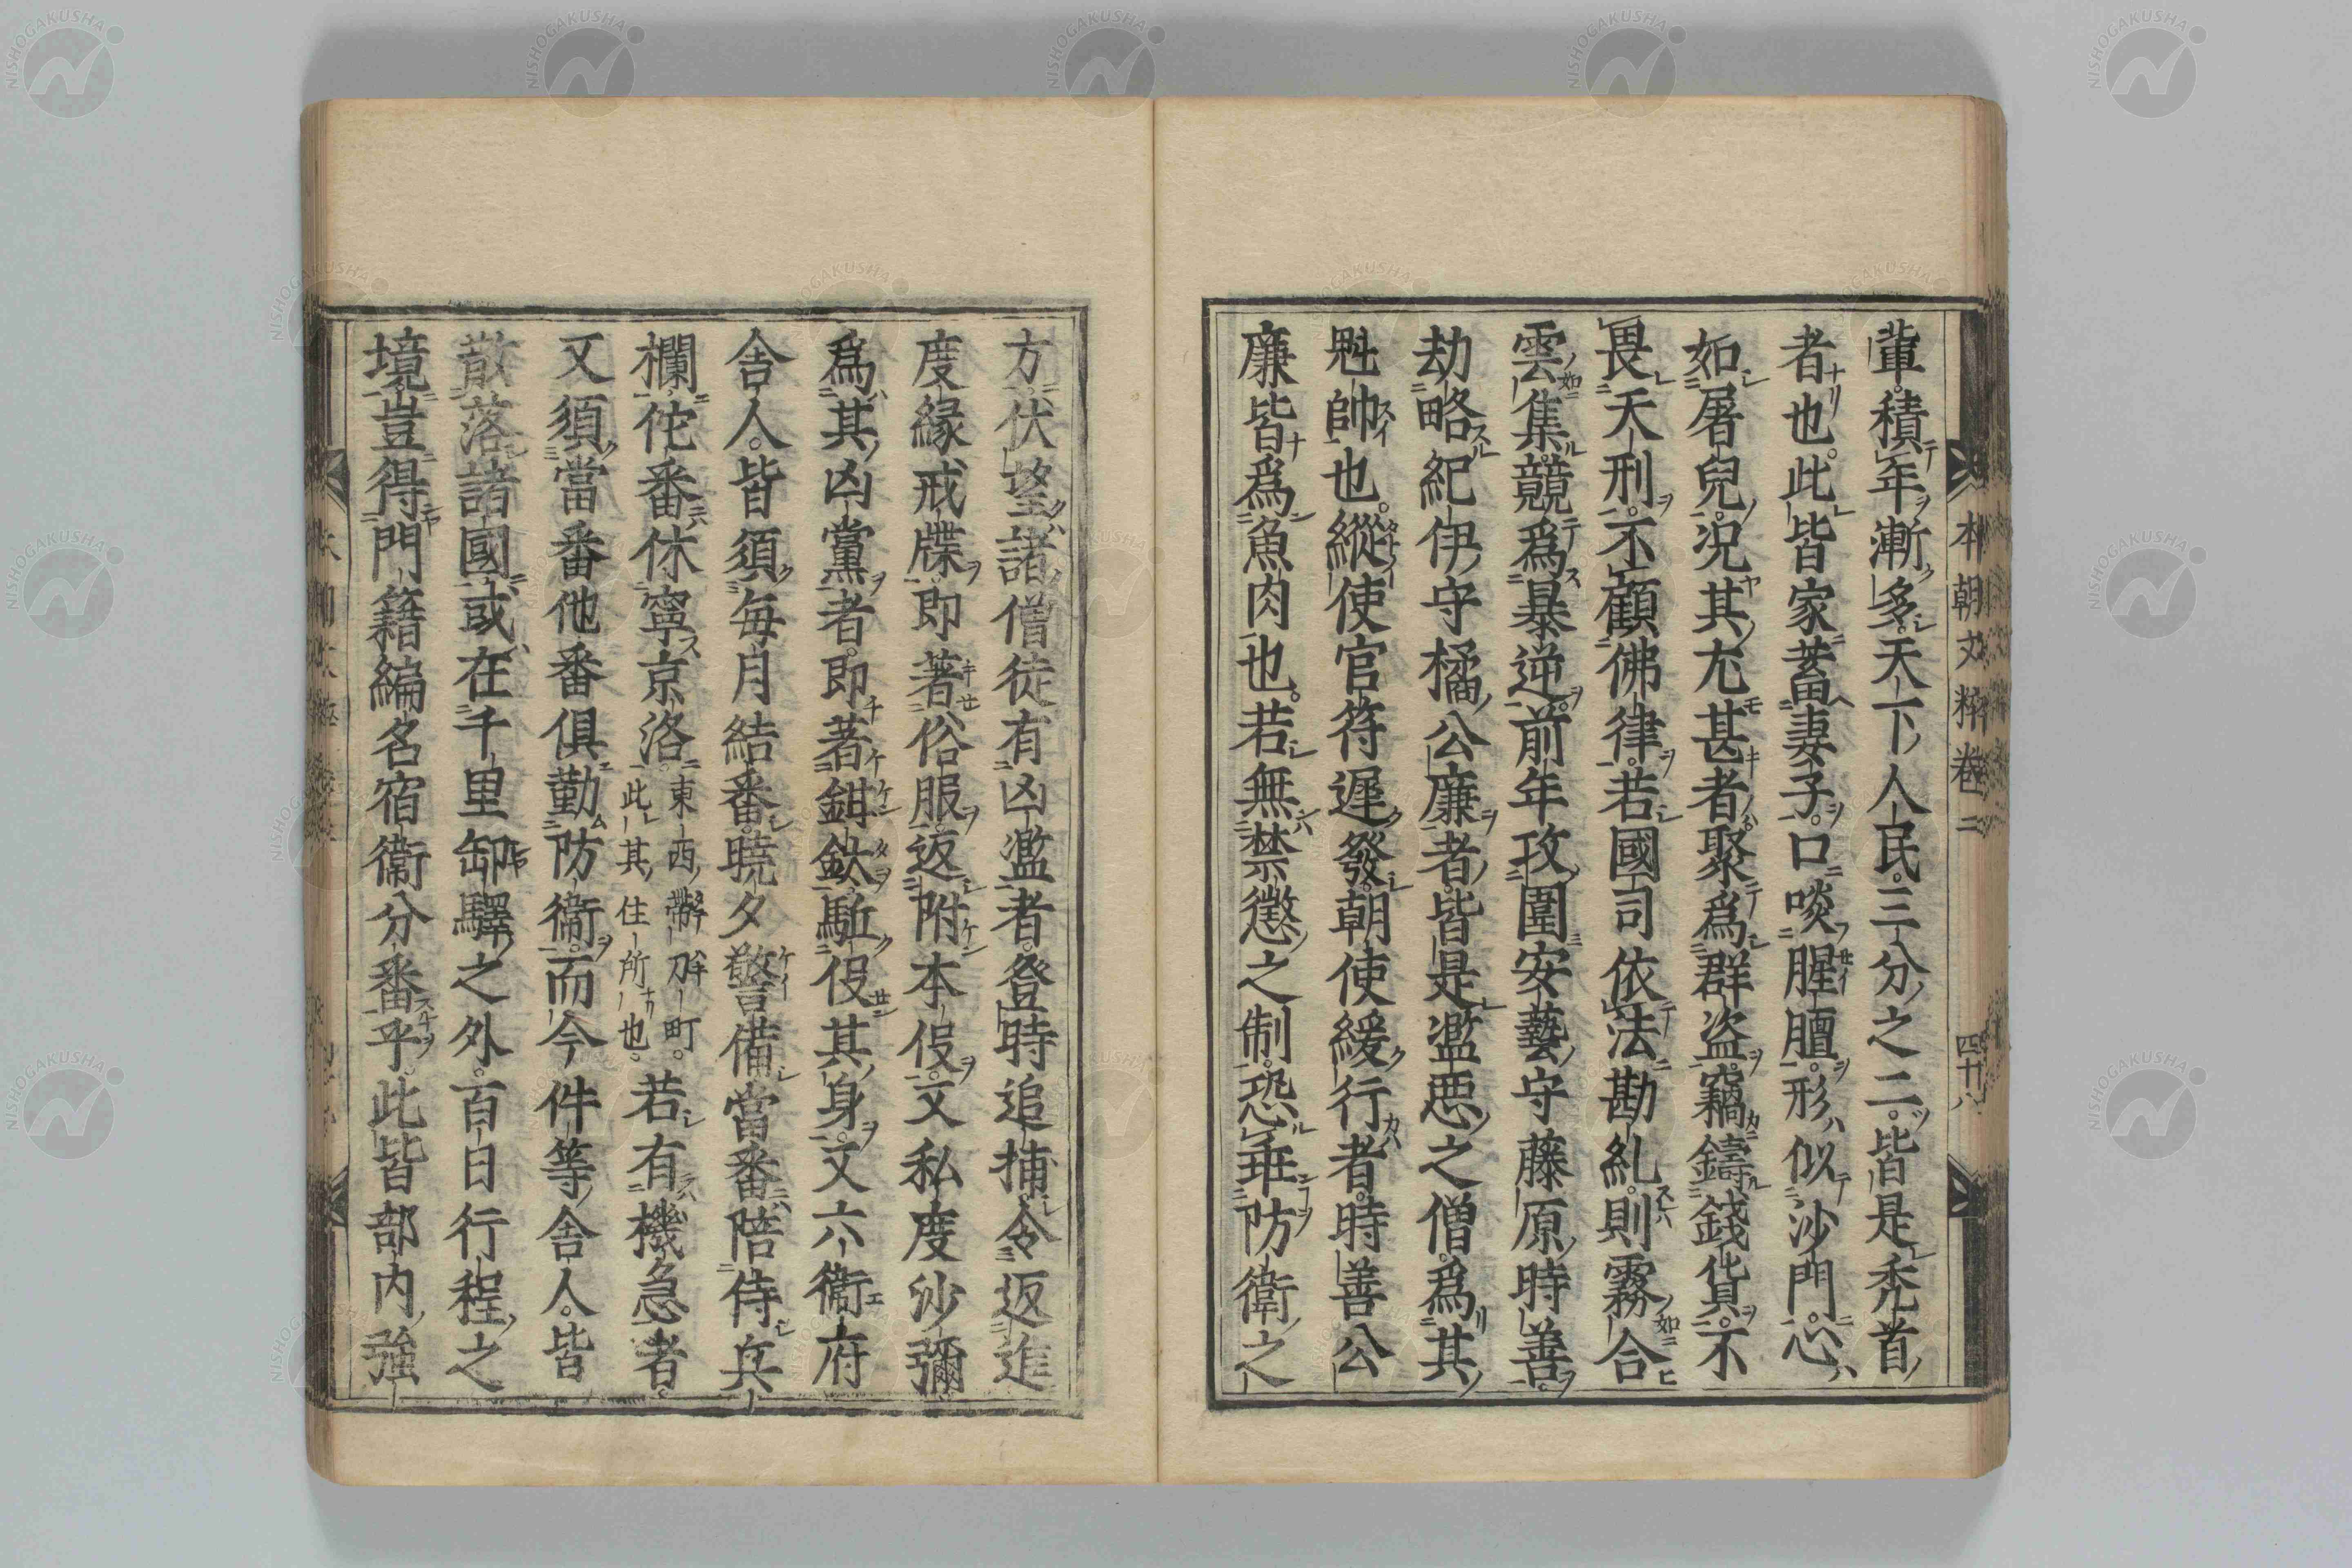 輩積年漸多天下人民三分之二皆是禿首
者也此皆家蓄妻子口啖腥膻形似沙門心
如屠兒況其尤甚者聚爲群盜竊鑄錢貨不
畏天刑不顧佛律若國司依法勘糺則霧合
雲集競爲暴逆前年攻圍安藝守藤原時善
劫略紀伊守橘公廉者皆是濫惡之僧爲其
魁帥也縱使官符遲發朝使緩行者時善公
廉皆爲魚肉也若無禁懲之制恐乖防衛之
本朝文粹卷二
四十八
方伏望諸僧徒有凶濫者登時追捕令返進
度緣戒牒即著俗服返附本役又私度沙彌
爲其凶黨者即著鉗釱駈役其身又六衞府
舍人皆須每月結番曉夕警備當番陪侍兵
欄佗番休寧京洛東西帶刀町此其住所也若有機急者
又須當番他番俱勤防衞而今件等舍人皆
散落諸國或在千里卸驛之外百日行程之
境豈得門籍編名宿衞分番乎此皆部內強
NISHOGAKUSHA